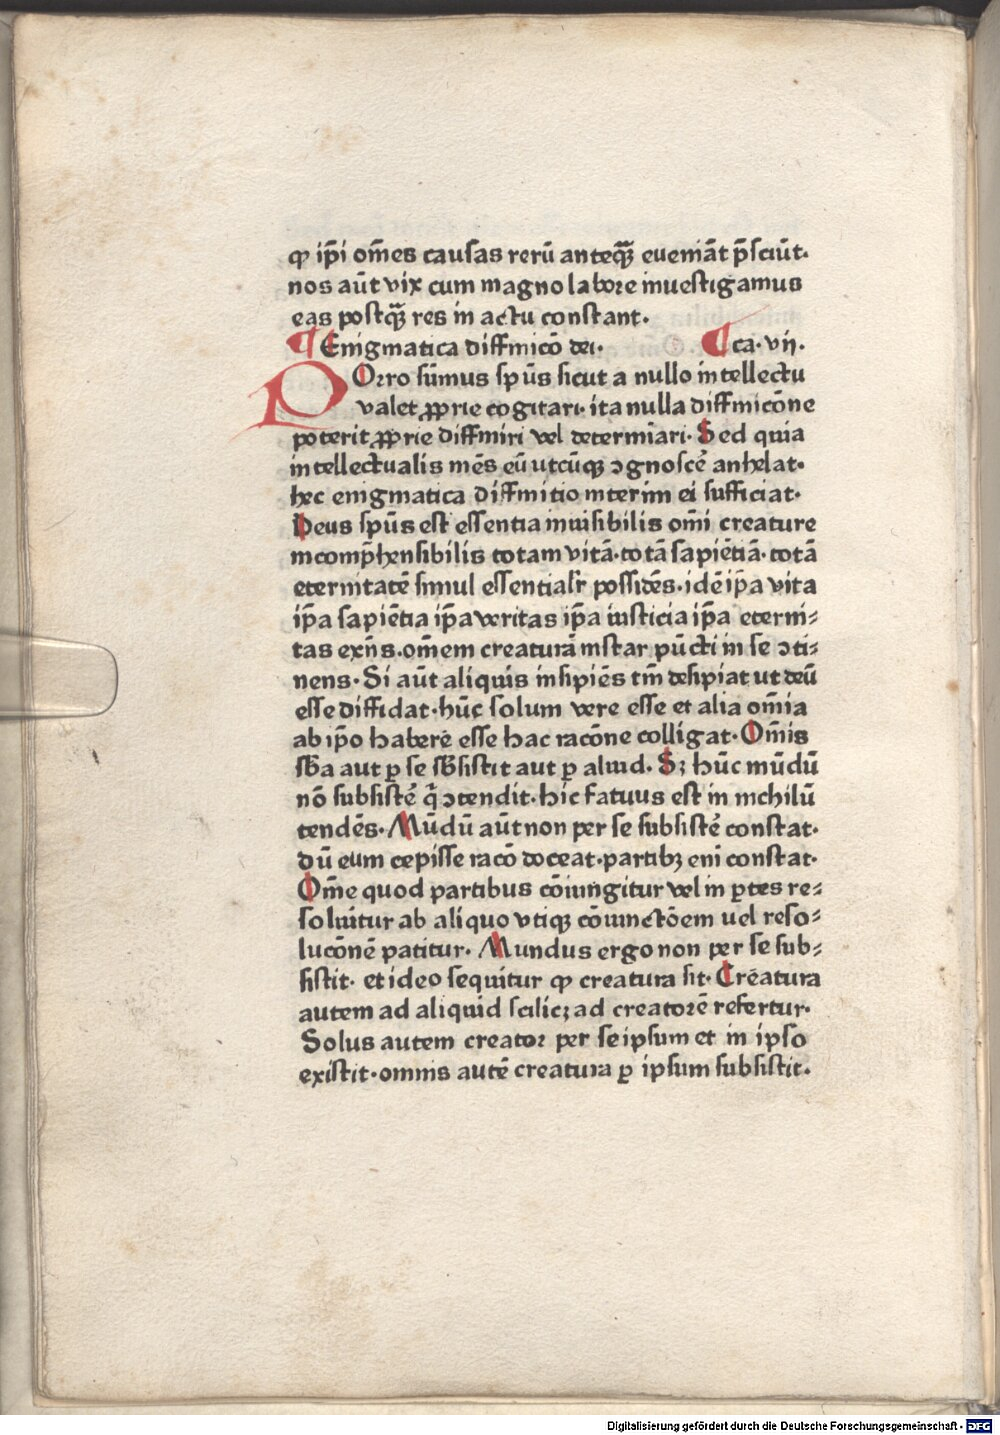 ꝙ ip̄i om̄es causas rerū anteqᷓꝫ eueniāt p̄sciūt·
nos aūt vix cum magno labore inuestigamus
eas postqᷓꝫ res in actu constant.
¶ Enigmatica diffinicō dei. ¶ ca·vij·
POrro sūmus sp̄us sicut a nullo intellectu
valet ꝓprie cogitari· ita nulla diffinicōne
poterit ꝓprie diffiniri vel determīari· Sed quia
intellectualis mēs eū utcūqꝫ ꝯgnoscē anhelat·
hec enigmatica diffinitio interim ei sufficiat·
Deus sp̄us est essentia inuisibilis om̄i creature
incomp̄hensibilis totam vitā·totā sapiētiā·totā
eternitatē simul essentialr̄ possidēs·idē ip̄a vita
ip̄a sapiētia ip̄a veritas ip̄a iusticia ip̄a eterni⸗
tas exn̄s·om̄em creaturā instar pūcti in se ꝯti⸗
nens· Si aūt aliquis insipiēs tm̄ desipiat ut deū
esse diffidat·hūc solum vere esse et alia om̄ia
ab ip̄o haberē esse hac racōne colligat· Om̄is
sb̄a aut ꝑ se sb̄sistit aut ꝑ aliud· Sꝫ hūc mūdū
nō subsistē q̄ ꝯtendit·hic fatuus est in nichilū
tendēs· Mūdū aūt non per se subsistē constat·
dū eum cepisse racō doceat·partibꝫ eni constat·
Om̄e quod partibus cōiungitur vel in ꝑtes re⸗
soluitur ab aliquo vtiqꝫ cōiunctōem uel reso⸗
lucōnē patitur· Mundus ergo non per se sub⸗
sistit· et ideo sequitur ꝙ creatura sit· Crēatura
autem ad aliquid scilicꝫ ad creatorē refertur·
Solus autem creator per seipsum et in ipso
existit·omnis autē creatura ꝑ ipsum subsistit.
Digitalisierung gefördert durch die Deutsche Forschungsgemeinschaft - DFG